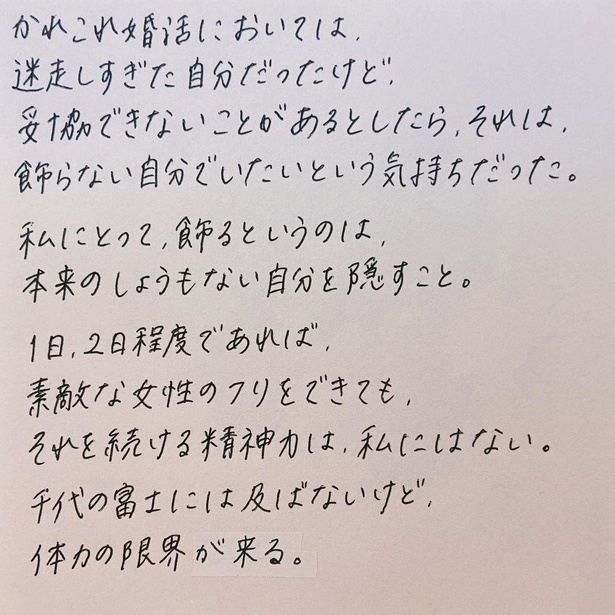 かれこれ婚活においては、
迷走しすぎた自分だったけど、
妥協できないことがあるとしたら、それは、
飾らない自分でいたいという気持ちだった。
私にとって、飾るというのは、
本来のしょうもない自分を隠すこと。
1日、2日程度であれば、
素敵な女性のフリをできても、
それを続ける精神力は、私にはない。
千代の富士には及ばないけど、
体力の限界が来る。